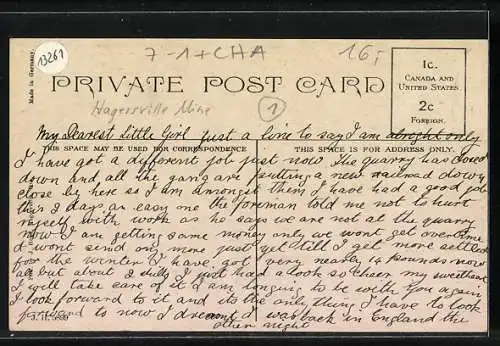 13261
7-1+CHA
16,-
Made in Germany.
PRIVATE POST CARD
1c.
CANADA AND
UNITED STATES.
2c
FOREIGN.
Hagersville Mine
1
My Dearest Little Girl just a line to say I am alright only
THIS SPACE MAY BE USED FOR CORRESPONDENCE
THIS SPACE IS FOR ADDRESS ONLY.
I have got a different job just now The quarry has closed
down and all the gang are putting a new railroad down
close by here so I am amongst them I have had a good job
this 3 days an easy one the foreman told me not to hurt
myself with work as he says we are not at the quarry
now I am getting same money only we wont get overtime
I wont send any more just yet till I get more settled
for the winter I have got very nearly 14 pounds now
all but about 2 shilly I just had a look so cheer my sweetheart
I will take care of it I am longing to be with you again
I look forward to it and its the only thing I have to look
forward to now I dreamt I was back in England the
other night